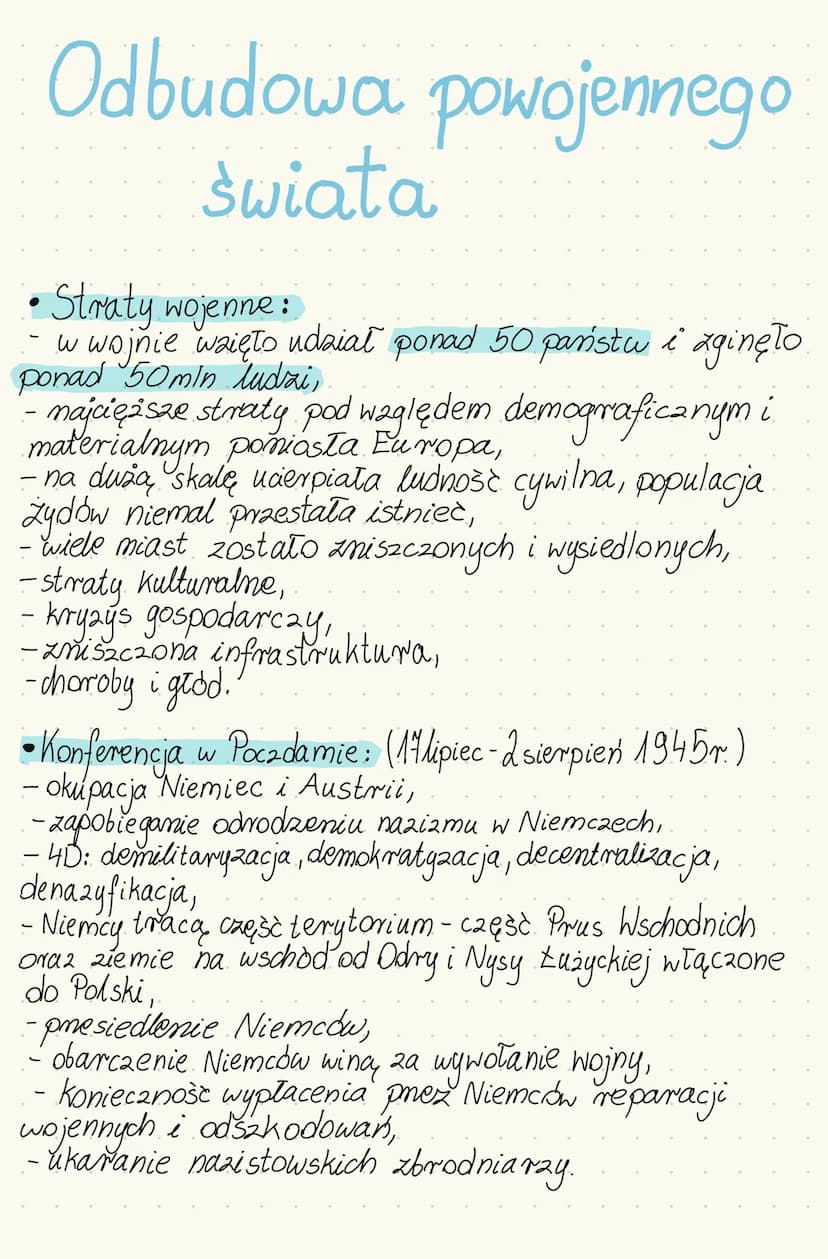 Odbudowa powojennego
świata
• Straty wojenne:
- w wojnie wzięło udział ponad 50 państw i zginęło
ponad 50mln ludzi,
- najcięższe straty pod względem demograficznym i
materialnym poniosła Europa,
- na dużą skalę ucierpiała ludność cywilna, populacja
żydów niemal przestała istnieć,
- wiele miast zostało zniszczonych i wysiedlonych,
- straty kulturalne,
- kryzys gospodarczy,
- zniszczona infrastruktura,
- choroby i głód.
• Konferencja w Poczdamie: (17 lipiec - 2 sierpień 1945r.)
- okupacja Niemiec i Austrii,
- zapobieganie odrodzeniu nazizmu w Niemczech,
- 4D: demilitaryzacja, demokratyzacja, decentralizacja,
denazyfikacja,
- Niemcy tracą część terytorium - część Prus Wschodnich
oraz ziemie na wschód od Odry i Nysy Łużyckiej włączone
do Polski,
- przesiedlenie Niemców,
- obarczenie Niemców winą za wywołanie wojny,
- konieczność wypłacenia przez Niemców reparacji
wojennych i odszkodowań,
- ukaranie nazistowskich zbrodniarzy.